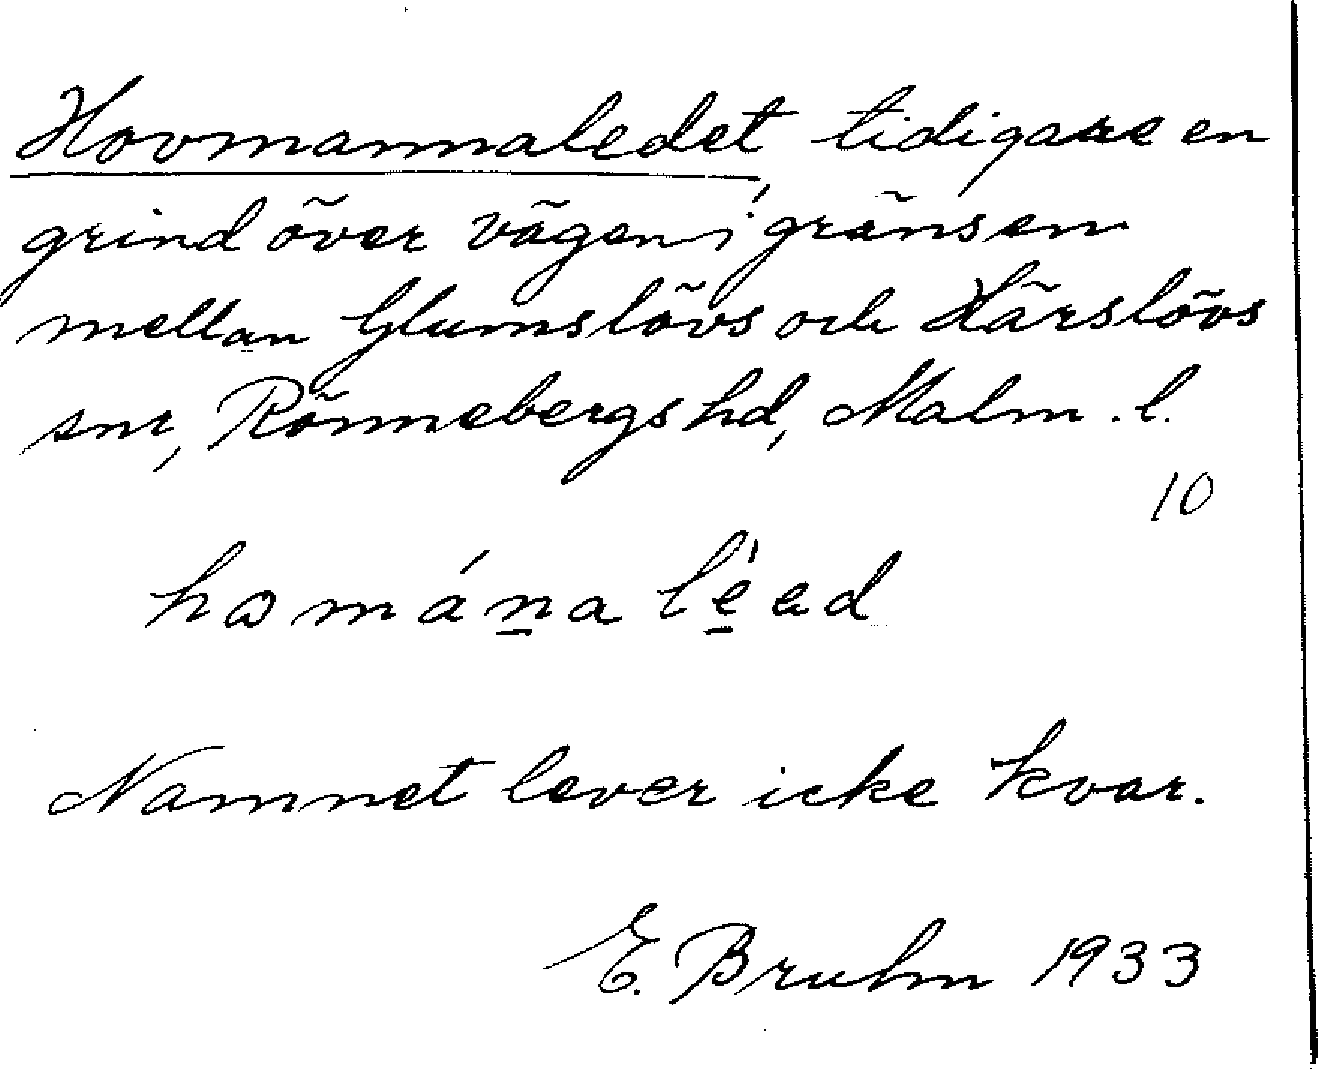 Hovmannaledet, tidigare en
grind över vägen i gränsen
mellan Glumslövs och Härslövs
snr, Rönnebergs hd, Malm. l.
10
homána léed
Namnet lever icke kvar.
E. Bruhn 1933